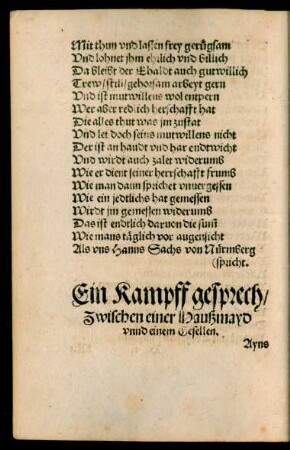 Mit thun vnd lassen frey gerůgsam
Vnd lohnet jhm ehrlich vnd billich
Da bleibt der Ehaldt auch gutwillich
Trew/still/gehorsam arbeyt gern
Vnd ist mutwillens wol entpern
Wer aber redlich herschafft hat
Die alles thut was jm zustat
Vnd let doch seins mutwillens nicht
Der ist an haudt vnd har endtwicht
Vnd wirdt auch zalet widerumb
Wie er dient seiner herrschafft frumb
Wie man dann sprichet vnuergessen
Wie ein jedtlichs hat gemessen
Wirdt jm gemessen widerumb
Das ist endtlich daruon die sum̃
Wie mans täglich vor augen sicht
Als vns Hanns Sachs von Nürmberg
spricht.
Ein Kampff gesprech/
Zwischen einer Haußmayd
vnnd einem Gesellen.
Ayns